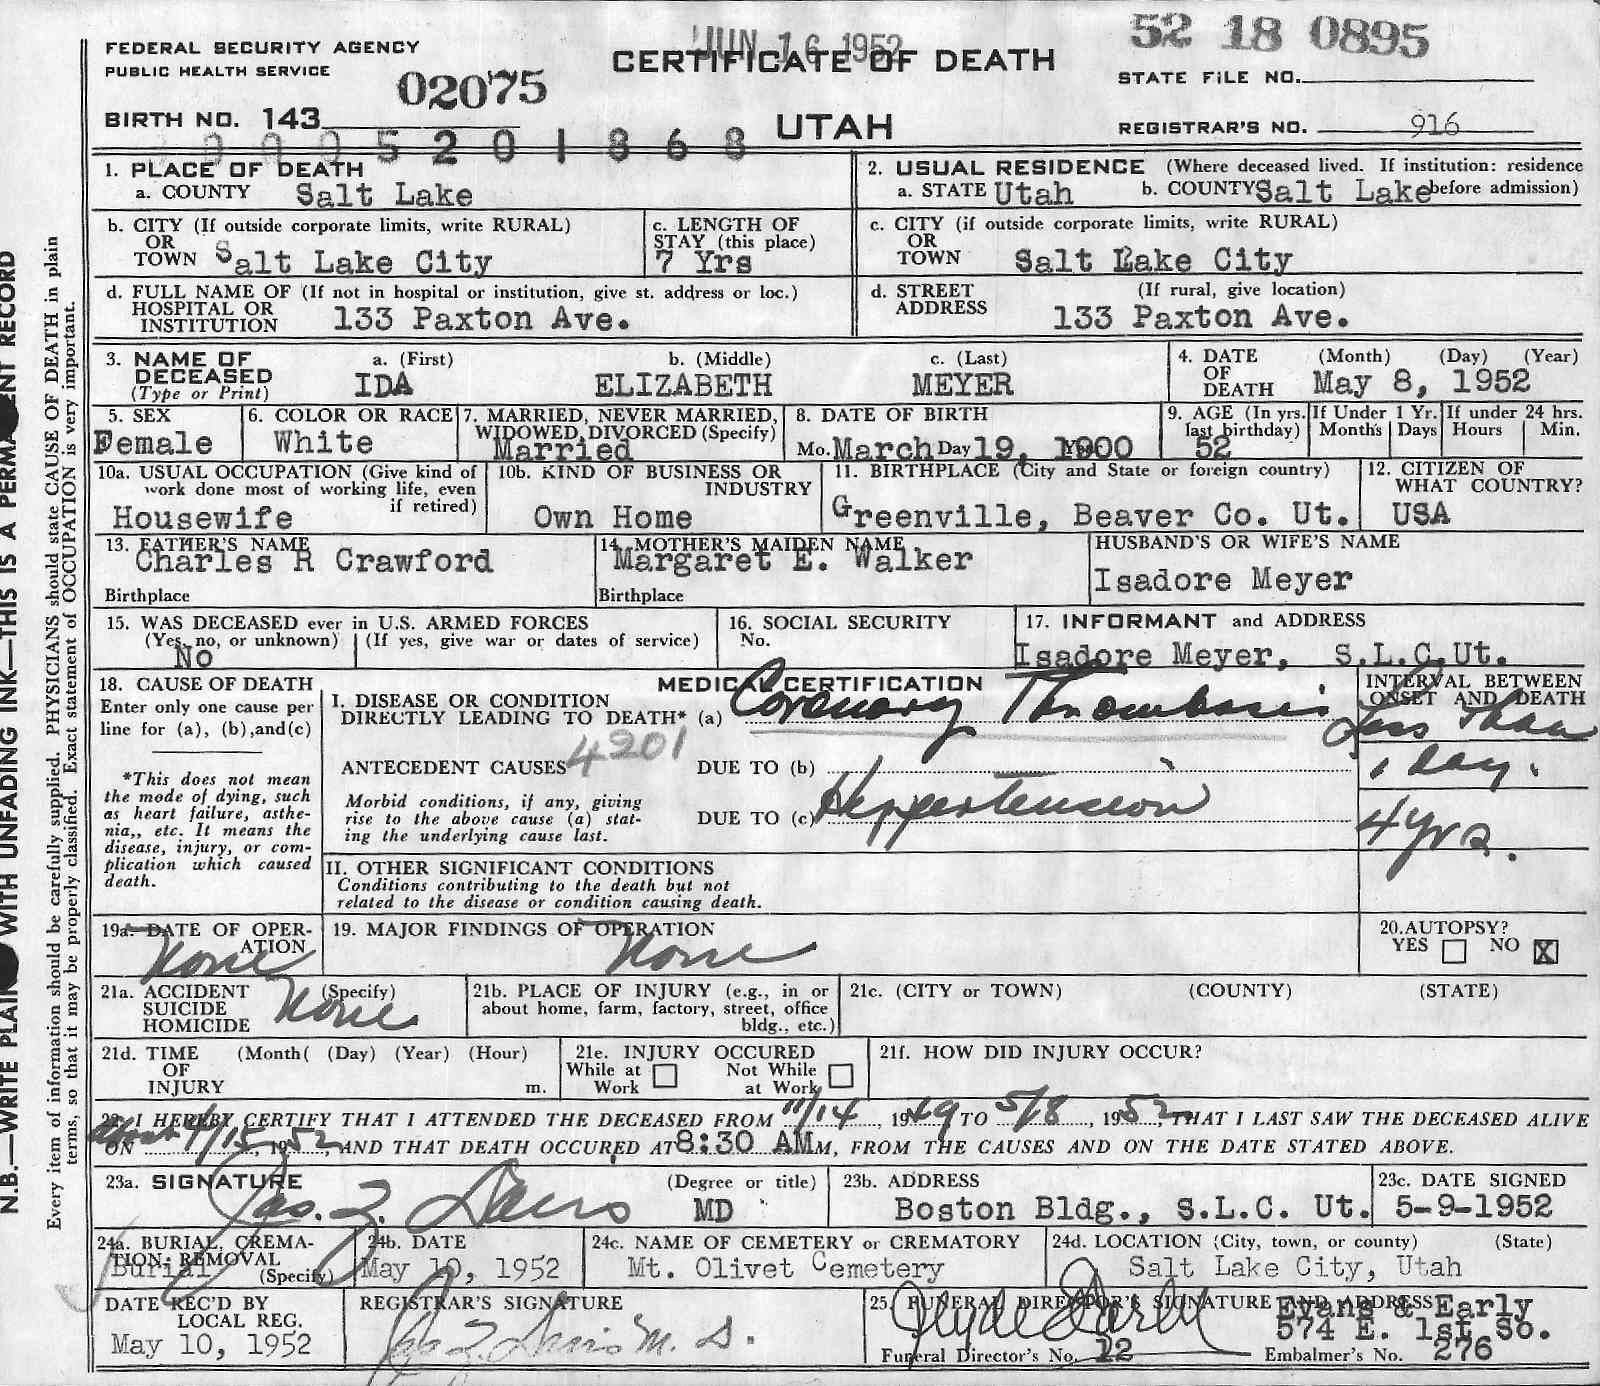 JUN 16 1952
52 18 0895
FEDERAL SECURITY AGENCY
PUBLIC HEALTH SERVICE
CERTIFICATE OF DEATH
STATE FILE NO.
02075
BIRTH NO. 143
UTAH
REGISTRAR'S NO. 916
5201868
1. PLACE OF DEATH
a. COUNTY Salt Lake
2. USUAL RESIDENCE (Where deceased lived. If institution: residence
a. STATE Utah b. COUNTY Salt Lake before admission)
b. CITY (If outside corporate limits, write RURAL)
OR
TOWN Salt Lake City
c. LENGTH OF
STAY (this place)
7 Yrs
c. CITY (if outside corporate limits, write RURAL)
OR
TOWN Salt Lake City
d. FULL NAME OF (If not in hospital or institution, give st. address or loc.)
HOSPITAL OR
INSTITUTION 133 Paxton Ave.
d. STREET (If rural, give location)
ADDRESS 133 Paxton Ave.
3. NAME OF DECEASED
(Type or Print)
a. (First) b. (Middle) c. (Last)
IDA ELIZABETH MEYER
4. DATE OF DEATH (Month) (Day) (Year)
May 8, 1952
5. SEX
Female
6. COLOR OR RACE
White
7. MARRIED, NEVER MARRIED,
WIDOWED, DIVORCED (Specify)
Married
8. DATE OF BIRTH
Mo. March Day 19, 1900
9. AGE (In yrs. last birthday)
52
If Under 1 Yr.
Months Days
If under 24 hrs.
Hours Min.
10a. USUAL OCCUPATION (Give kind of
work done most of working life, even
if retired)
Housewife
10b. KIND OF BUSINESS OR
INDUSTRY
Own Home
11. BIRTHPLACE (City and State or foreign country)
Greenville, Beaver Co. Ut.
12. CITIZEN OF
WHAT COUNTRY?
USA
13. FATHER'S NAME
Charles R Crawford
Birthplace
14. MOTHER'S MAIDEN NAME
Margaret E. Walker
Birthplace
HUSBAND'S OR WIFE'S NAME
Isadore Meyer
15. WAS DECEASED ever in U.S. ARMED FORCES
(Yes, no, or unknown) (If yes, give war or dates of service)
No
16. SOCIAL SECURITY
No.
17. INFORMANT and ADDRESS
Isadore Meyer, S.L.C.Ut.
18. CAUSE OF DEATH
Enter only one cause per
line for (a), (b),and(c)
*This does not mean
the mode of dying, such
as heart failure, asthe-
nia,, etc. It means the
disease, injury, or com-
plication which caused
death.
MEDICAL CERTIFICATION
INTERVAL BETWEEN
ONSET AND DEATH
I. DISEASE OR CONDITION
DIRECTLY LEADING TO DEATH* (a) Coronary Thrombosis
Less than
1 day.
4201
ANTECEDENT CAUSES DUE TO (b)
Morbid conditions, if any, giving
rise to the above cause (a) stat-
ing the underlying cause last.
DUE TO (c) Hyppertension
4 yrs.
II. OTHER SIGNIFICANT CONDITIONS
Conditions contributing to the death but not
related to the disease or condition causing death.
19a. DATE OF OPER-
ATION
None
19. MAJOR FINDINGS OF OPERATION
None
20. AUTOPSY?
YES NO X
21a. ACCIDENT (Specify)
SUICIDE
HOMICIDE
None
21b. PLACE OF INJURY (e.g., in or
about home, farm, factory, street, office
bldg., etc.)
21c. (CITY or TOWN) (COUNTY) (STATE)
21d. TIME (Month( (Day) (Year) (Hour)
OF
INJURY m.
21e. INJURY OCCURED
While at Work
Not While at Work
21f. HOW DID INJURY OCCUR?
22. I HEREBY CERTIFY THAT I ATTENDED THE DECEASED FROM 11/14, 1949 TO 5/8, 1952, THAT I LAST SAW THE DECEASED ALIVE
ON about 4/15, 1952, AND THAT DEATH OCCURED AT 8:30 AM M, FROM THE CAUSES AND ON THE DATE STATED ABOVE.
23a. SIGNATURE (Degree or title)
Jas. Z. Davis MD
23b. ADDRESS
Boston Bldg., S.L.C. Ut.
23c. DATE SIGNED
5-9-1952
24a. BURIAL, CREMA-
TION, REMOVAL
(Specify)
Burial
24b. DATE
May 10, 1952
24c. NAME OF CEMETERY or CREMATORY
Mt. Olivet Cemetery
24d. LOCATION (City, town, or county) (State)
Salt Lake City, Utah
DATE REC'D BY
LOCAL REG.
May 10, 1952
REGISTRAR'S SIGNATURE
Jas Z. Davis M. D.
25. FUNERAL DIRECTOR'S SIGNATURE AND ADDRESS
Evans & Early
574 E. 1st So.
Funeral Director's No. 12
Embalmer's No. 276
N.B.—WRITE PLAINLY WITH UNFADING INK—THIS IS A PERMANENT RECORD
Every item of information should be carefully supplied. PHYSICIANS should state CAUSE OF DEATH in plain
terms, so that it may be properly classified. Exact statement of OCCUPATION is very important.